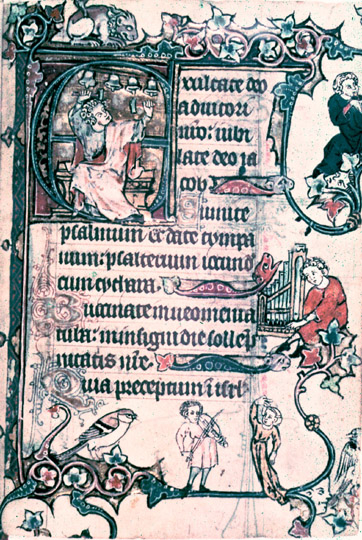 Exultate deo
adiutori
nr̄o: iubi
late deo ia
cob
Sumite
psalmum et date tympa
num: psalterium iocund
cum cythara
Buccinate in neomenia
tuba: in insigni die sollep̄
nitatis nr̄e.
Quia preceptum ī isrl